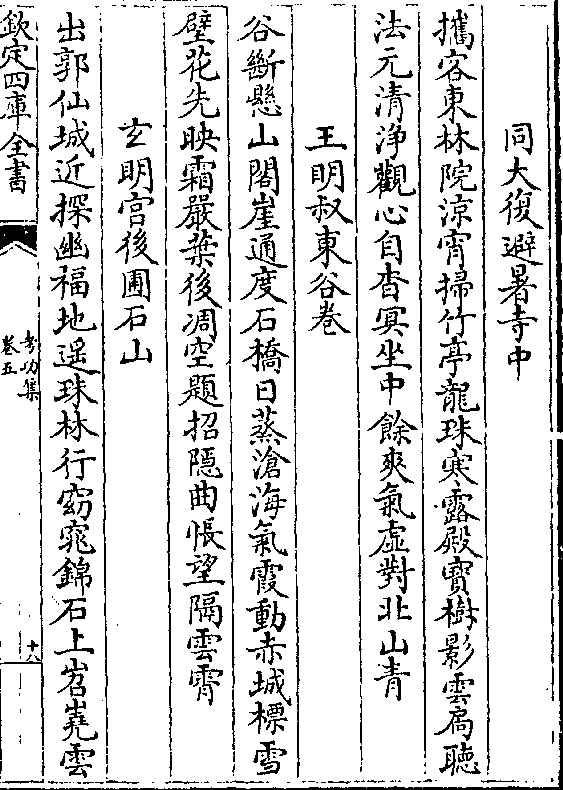 同大復避暑寺中
攜客東林院涼宵掃竹亭龍珠寒露殿寶樹影雲扃聽
法元清淨觀心自杳冥坐中餘爽氣虛對北山青
王明叔東谷卷
谷斷懸山閣崖通度石橋日蒸滄海氣霞動赤城標雪
壁花先映霜嚴葉後凋空題招隱曲悵望隔雲霄
玄明宫後圃石山
出郭仙城近探幽福地遥珠林行窈窕錦石上岧嶤雲
欽定四庫全書
考功集
卷五
十八